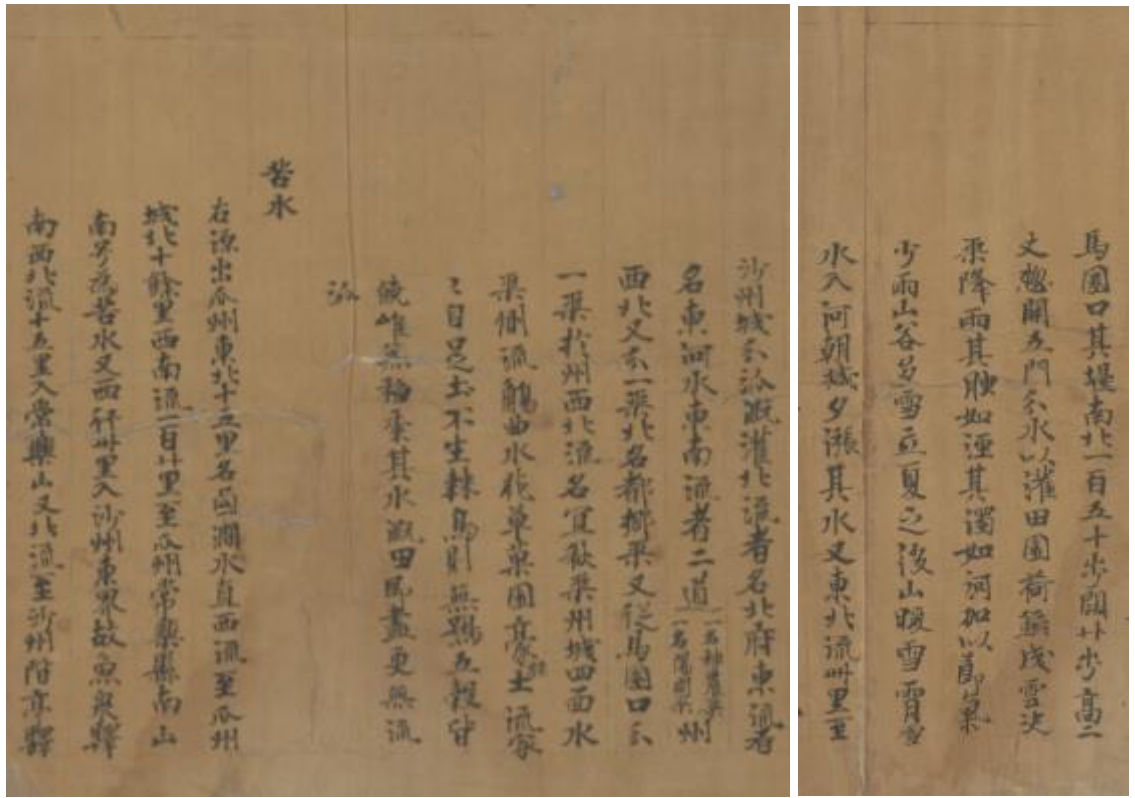 馬圈口其堰南北一百五十步闊廿步高二
丈惣開五門分水以灌田園荷鍤成雲決
渠降雨其腴如涇其濁如河加以節氣
少雨山谷多雪立夏之後山暖雪霄雪
水入河朝減夕漲其水又東北流卌里至
沙州城分派溉灌北流者名北府東流者
名東河水東南流者二道一名神農渠一名陽開渠州
西北又分一渠北名都鄉渠又從馬圈口分
一渠於州西北流名宜秋渠州城四面水
渠側流觴曲水花草菓園豪士流家
〻自足土不生棘鳥則無鴞五穀皆
饒唯無稻黍其水溉田即盡更無流
派
苦水
右源出瓜州東北十五里名鹵澗水直西流至瓜州
城北十餘里西南流一百廿里至瓜州常樂縣南山
南号為苦水又西行卅里入沙州東界故魚泉驛
南西北流十五里入常樂山又北流至沙州階亭驛